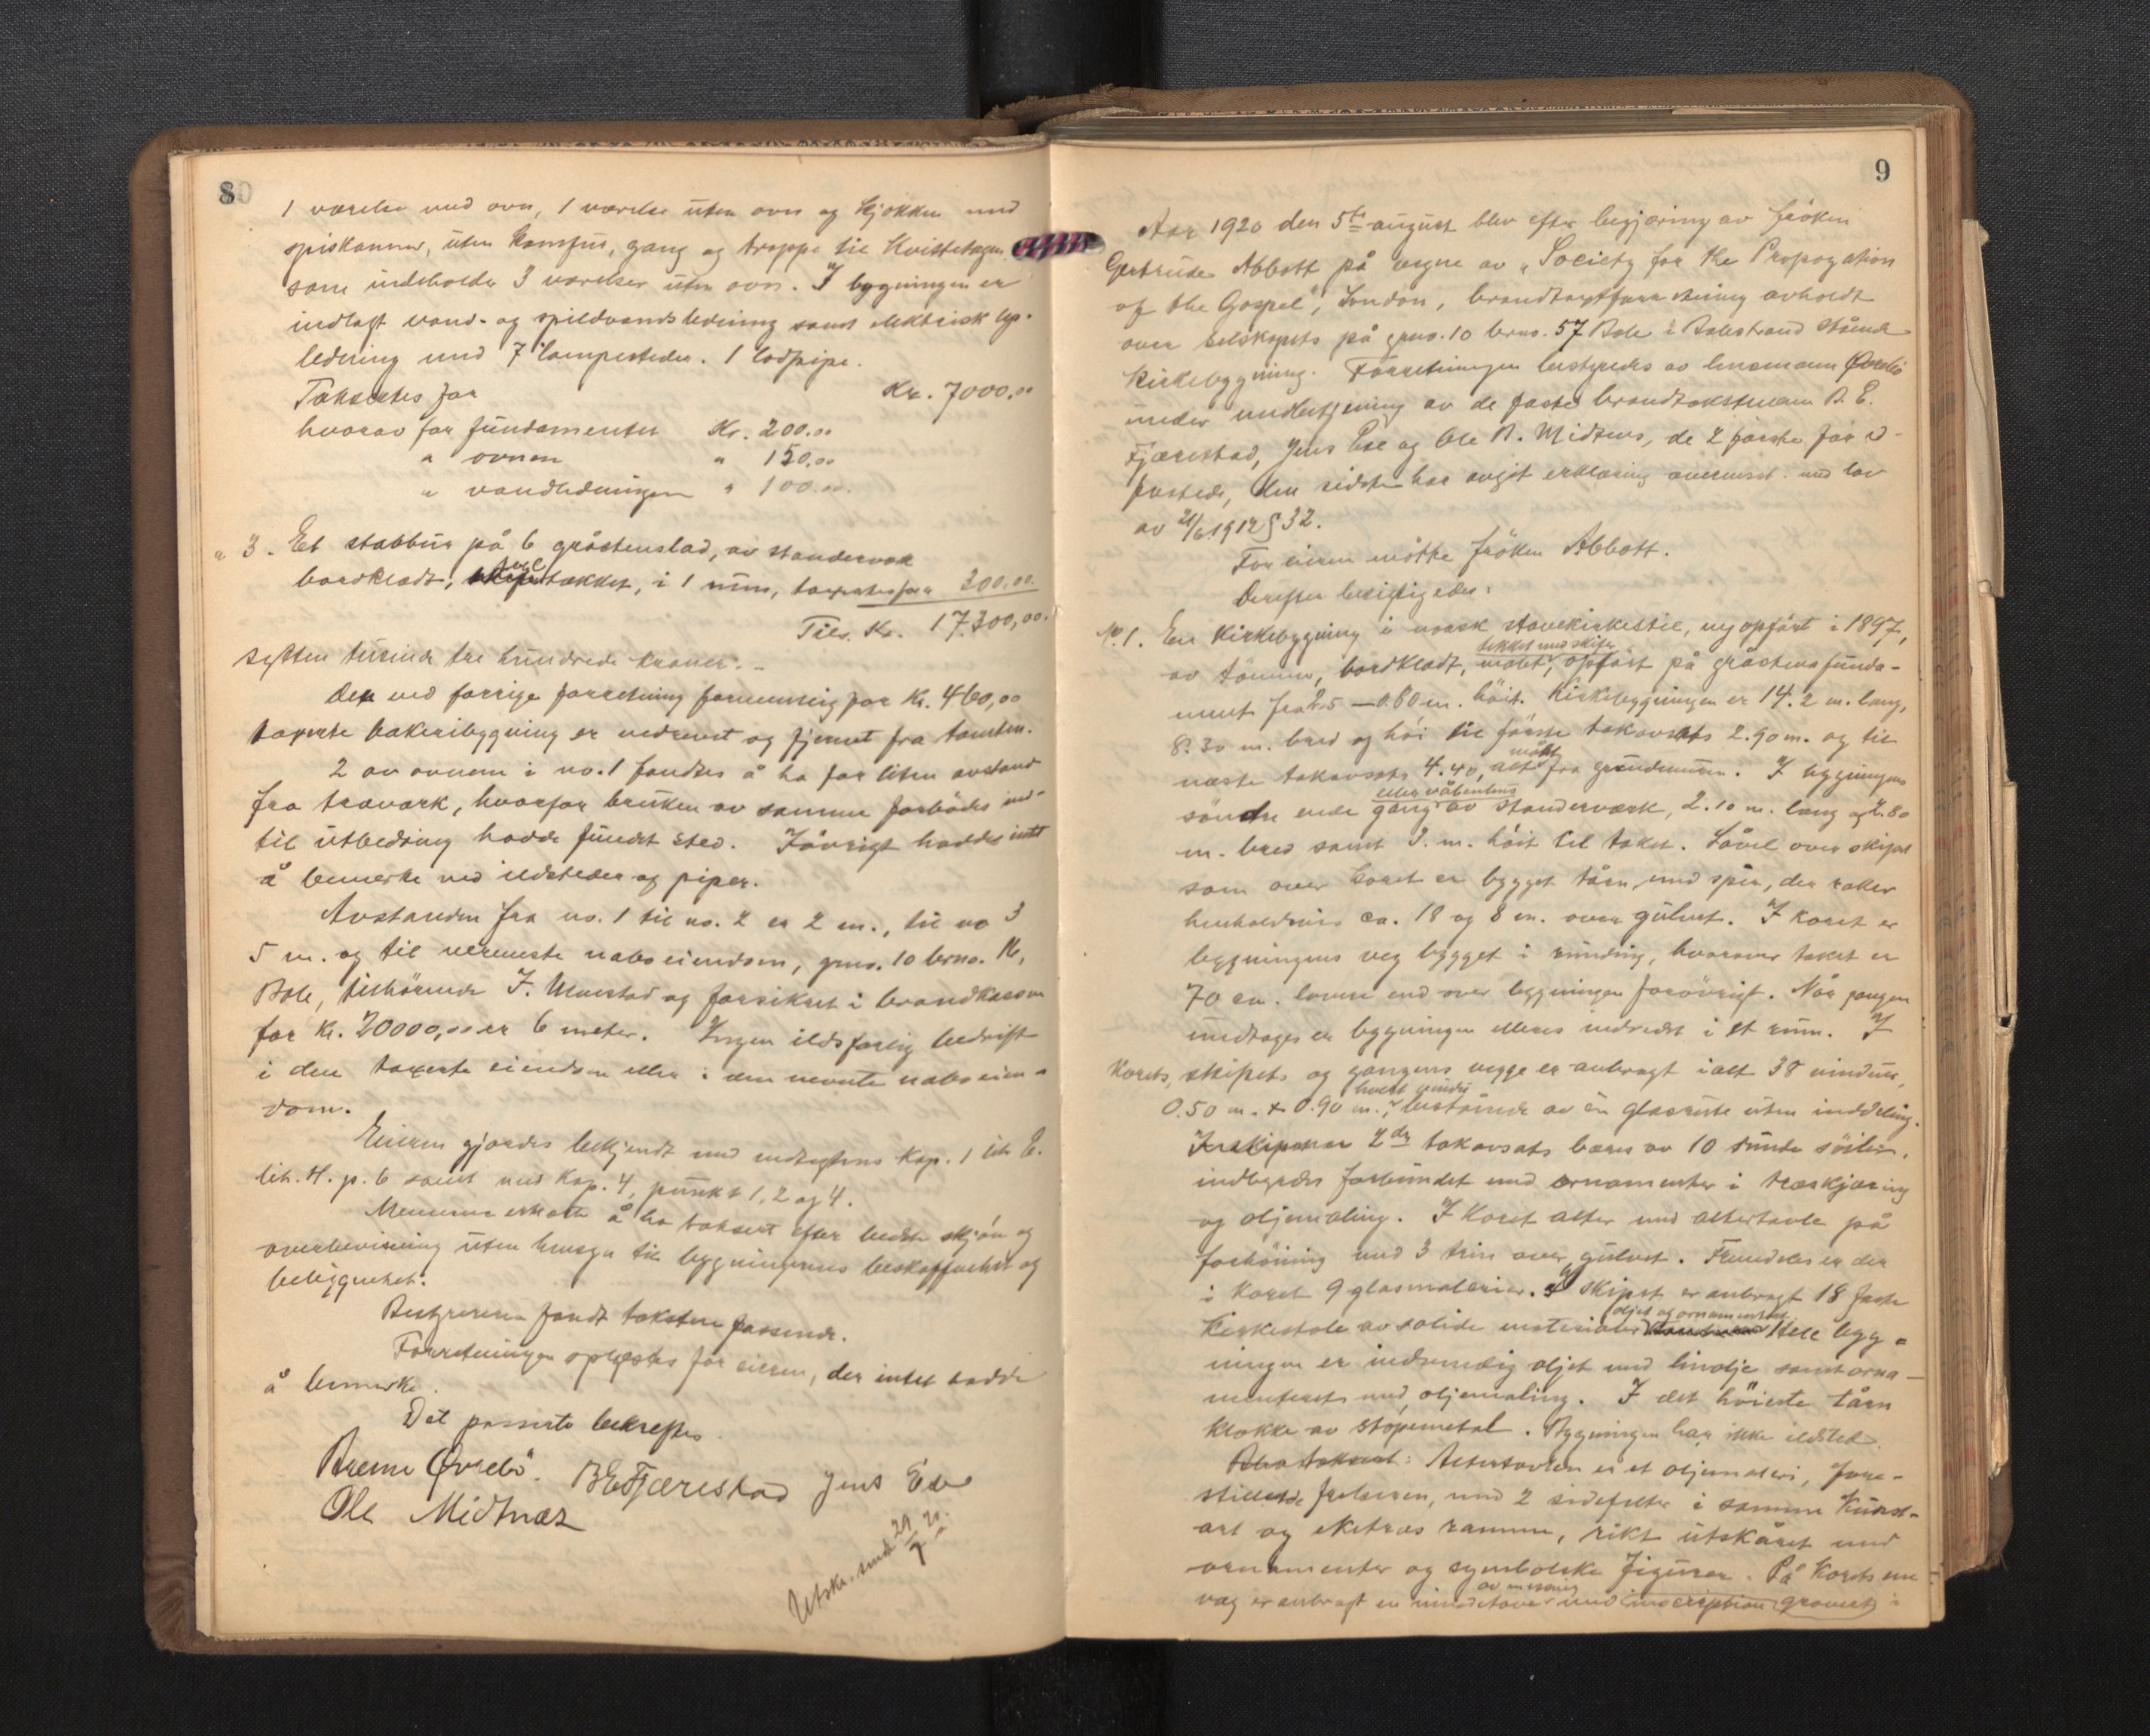 8
1 værelse med ovn, 1 værelse uten ovn og kjøkken med
spiskammer, uten komfur, gang og trappe til kvistetagen
som indeholder 3 værelser uten ovn. I bygningen er
indlagt vand- og spildvandsledning samt elektrisk lys-
ledning med 7 lampesteder. 1 lodpipe.
Takseres for Kr. 7000,00
hvorav for fundamentet Kr. 200.00
" ovnen " 150,00
" vandledningen " 100.00.
" 3. Et stabbur på 6 gråstenslad, av standerverk
bordklædt, tækket, i 1 rum, taxertes for 300.00.
Tils. Kr. 17300,00.
sytten tusinde tre hundrede kroner. -
Den ved forrige forretning for Kr. 460,00
taxerte bakeribygning er nedrevet og fjernet fra tomten.
2 av ovnene i no. 1 fandtes å ha for liten avstand
fra træverk, hvorfor bruken av samme forbødes ind-
til utbedring hadde fundet sted. Iøvrigt haddes intet
å bemerke ved ildsteder og piper.
Avstanden fra no. 1 til no. 2 er 2 m., til no 3
5 m. og til nærmeste naboeiendom, gno. 10 brno. 16,
Bale, tilhørende I. og forsikret i brandkassen
for kr. 20000,00 er 6 meter. Ingen ildsfarlig bedrift
i den taxerte eiendom eller i den nevnte naboeien-
dom.
Eieren gjordes bekjendt med vedtægtens Kap. 1 lit. E.
lit. H. p. 6 samt med Kap. 4, punkt 1, 2 og 4.
Mennene erklærte å ha taksert efter bedste skjøn og
overbevisning uten hensyn til bygningernes beskaffenhet og
beliggenhet.
Bestyreren fandt taksten passende.
Forretningen oplæstes for eieren, der intet hadde
å bemerke.
Det passerte bekreftes.
Øvrebö. B E Fjærestad Jens Ese
Ole Midtnæs
Utskr. send 29/7 20.
9
Aar 1920 den 5te august blev efter begjæring av frøken
Gertrude Abbott på vegne av "Society for the Propogation
of the Gospel", London, brandtaxtforretning avholdt
over selskapets på gno. 10 brno. 57 Bale i Balestrand stående
kirkebygning. Forretningen bestyredes av lensmann Øvrebö
under medbetjening av de faste brandtakstmenn B. E.
Fjærestad, Jens Ese og Ole B. Midtnes, de 2 første før ed-
fæstede, den sidste har avgit erklæring overensst. med lov
av 21/6 1912 § 32.
For eieren møtte frøken Abbott.
Derefter besigtigedes:
No. 1. En kirkebygning i norsk stavekirkestil, nyopført i 1897,
tekket med skifer
av tömmer, bordklædt, malet, opført på gråstensfunda-
ment fra - 0.80 m. høit. Kirkebygningen er 14.2 m. lang,
8.30 m. bred og höi til første takavsats 2.90 m. og til
målt
næste takavsats 4.40, alt fra grundmuren. I bygningens
eller våbenhus
søndre ende gang av standerværk, 2.10 m. lang og 2.80
m. bred samt 3. m. høit til taket. Såvel over skipet
som over koret er bygget tårn med spir, der rækker
henholdsvis ca. 18 og 8 m. over gulvet. I koret er
bygningens veg bygget i runding, hvorover taket er
70 cm. lavere end over bygningen forøvrigt. Når gangen
undtages er bygningen ellers indredet i et rum. I
Korets, skipets og gangens vegge er anbragt ialt 38 vinduer,
hvert vindu
0.50 m. x 0.90 m., bestående av en glasrute uten inddeling.
I skipet 2det takavsats bæres av 10 runde søiler,
indbyrdes forbundet med ornamenter i træskjæring
og oljemaling. I koret alter med altertavle på
forhöining med 3 trin over gulvet. Fremdeles er der
i koret 9 glasmalerier. I skipet er anbragt 18 faste
oljet og ornamentert
kirkestole av solide materialer. Hele byg-
ningen er indvendig oljet med linolje samt orna-
menteret med oljemaling. I det höieste tårn
klokke av støpemetal. Bygningen har ikke ildsted.
Altertavlen er et oljemaleri, fore-
stillende frelseren, med 2 sidefelter i samme kunst-
art og eketræs ramme, rikt utskåret med
ornamenter og symbolske figurer. På korets ene
av messing
væg er anbragt en mindetavle med inscription graveret i